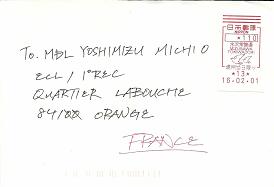 To. MDL YOSHIMIZU MICHIO
ECL / 1°REC
QUARTIER LABOUCHE
84100 ORANGE
FRANCE
日本郵便
NIPPON
*110*
*13*
16.02.01